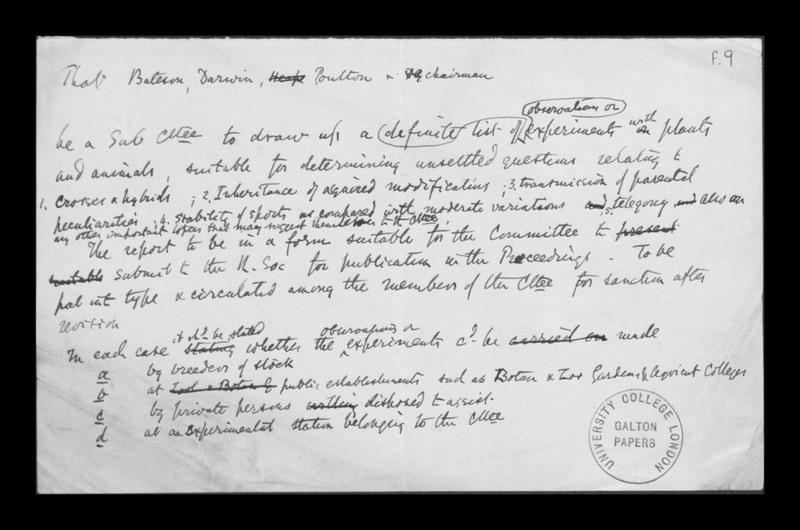 F.9
That Bateson, Darwin, Heape Poulton & chairman
observation or
be a Sub Cttee to draw up a definite list of experiments with on plants
and animals, suitable for determining unsettled questions relating to
1. Crosses & hybrids ; 2. Inheritance of acquired modifications ; 3. transmission of parental
peculiarities ; 4. stability of sports as compared with moderate variations and 5. telegony and also on
any other important topics that may suggest themselves to the Cttee
The report to be in a form suitable for the Committee to present
suitable submit to the R. Soc for publication in the Proceedings . To be
put into type & circulated among the members of the Cttee for sanction after
revision
it shd be stated observations or
In each case stating whether the experiments cd be carried on made
a by breeders of stock
b at Zool & Botan G public establishments such as Botan & Zoo Gardens & Agricult Colleges
c by private persons willing disposed to assist
d at an Experimental station belonging to the Cttee
UNIVERSITY COLLEGE LONDON
GALTON
PAPERS